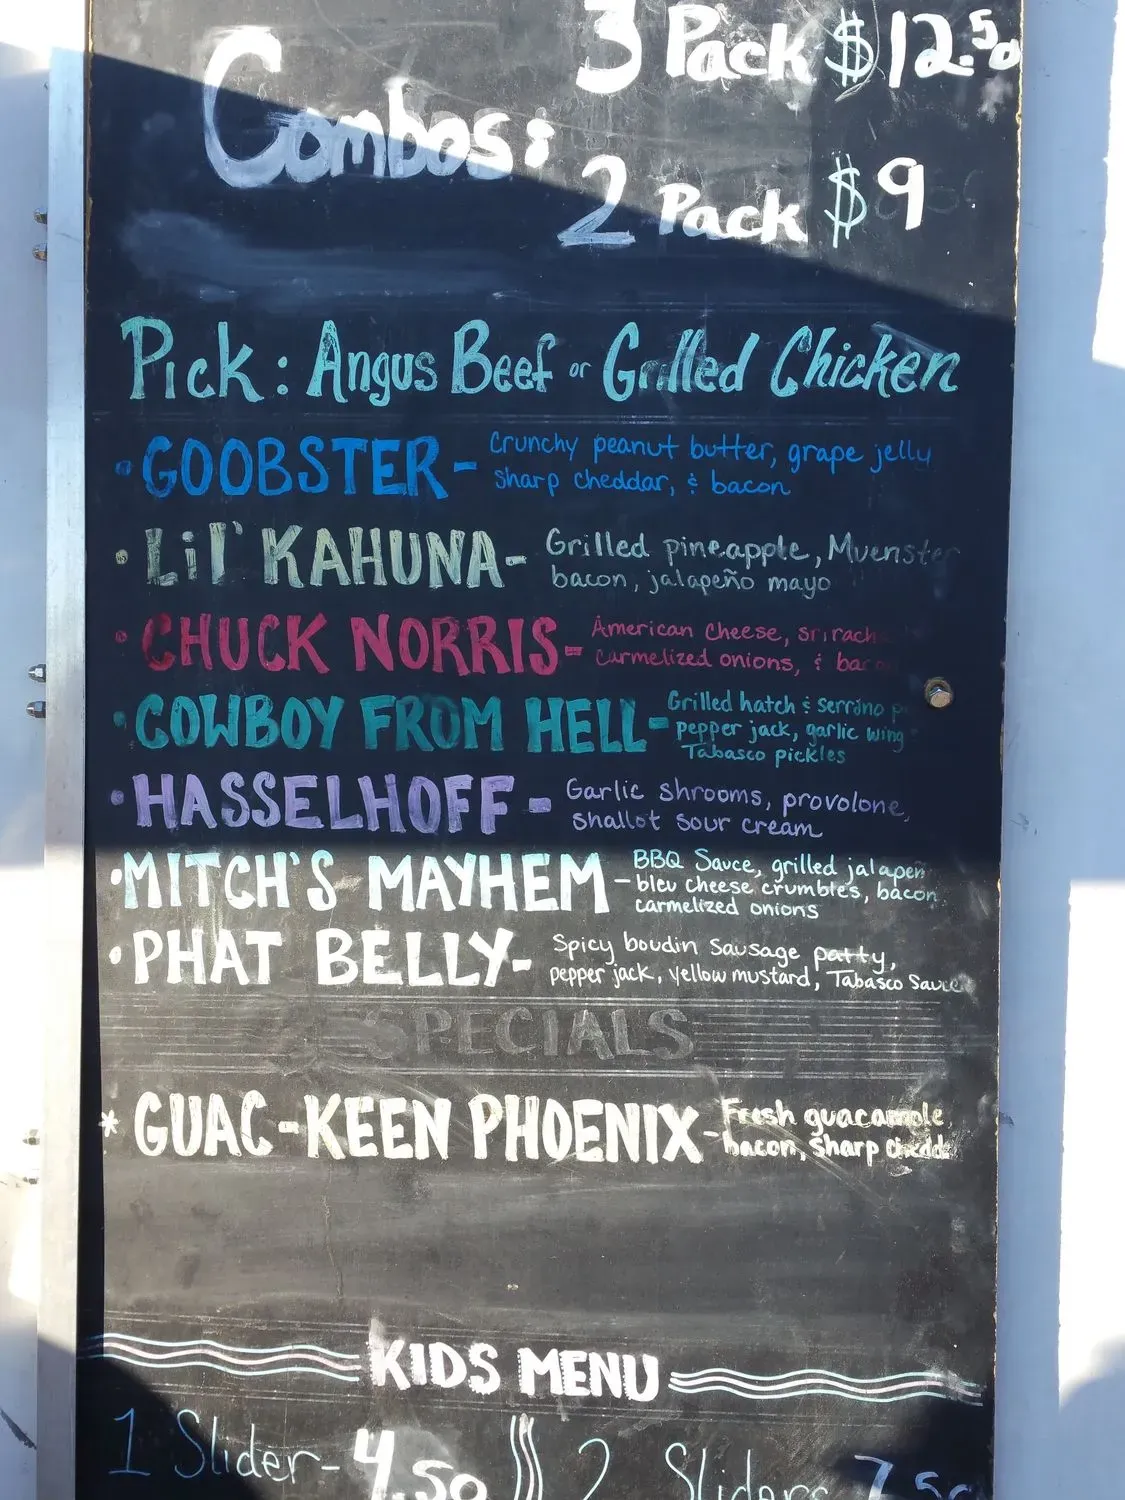 Combos: 3 Pack $12.50
2 Pack $9
Pick: Angus Beef or Grilled Chicken
• GOOBSTER - Crunchy peanut butter, grape jelly
sharp cheddar, & bacon
• LiL' KAHUNA - Grilled pineapple, Muenster
bacon, jalapeño mayo
• CHUCK NORRIS - American cheese, srirach
carmelized onions, & bacon
• COWBOY FROM HELL - Grilled hatch & serrano
pepper jack, garlic wing
Tabasco pickles
• HASSELHOFF - Garlic shrooms, provolone,
shallot sour cream
• MITCH'S MAYHEM - BBQ Sauce, grilled jalapen
bleu cheese crumbles, bacon,
carmelized onions
• PHAT BELLY - Spicy boudin sausage patty,
pepper jack, yellow mustard, Tabasco Sauce
SPECIALS
* GUAC-KEEN PHOENIX - Fresh guacamole,
bacon, sharp chedda
KIDS MENU
1 Slider - 4.50 2 Sliders 7.50